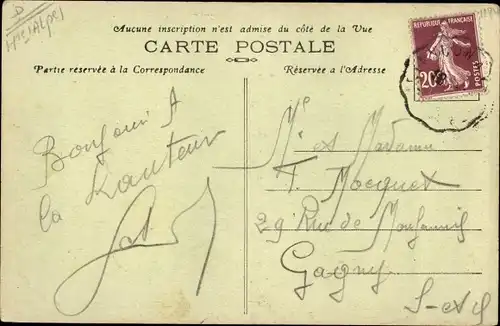 D
Aucune inscription n'est admise du côté de la Vue
CARTE POSTALE
Partie reservée à la Correspondance
Réservée a l'Adresse
REPUBLIQUE FRANÇAISE
20c
POSTES
Bonjour
la
Mr et Madame
F. Mocquet
29 Rue de
Gagny
S-et